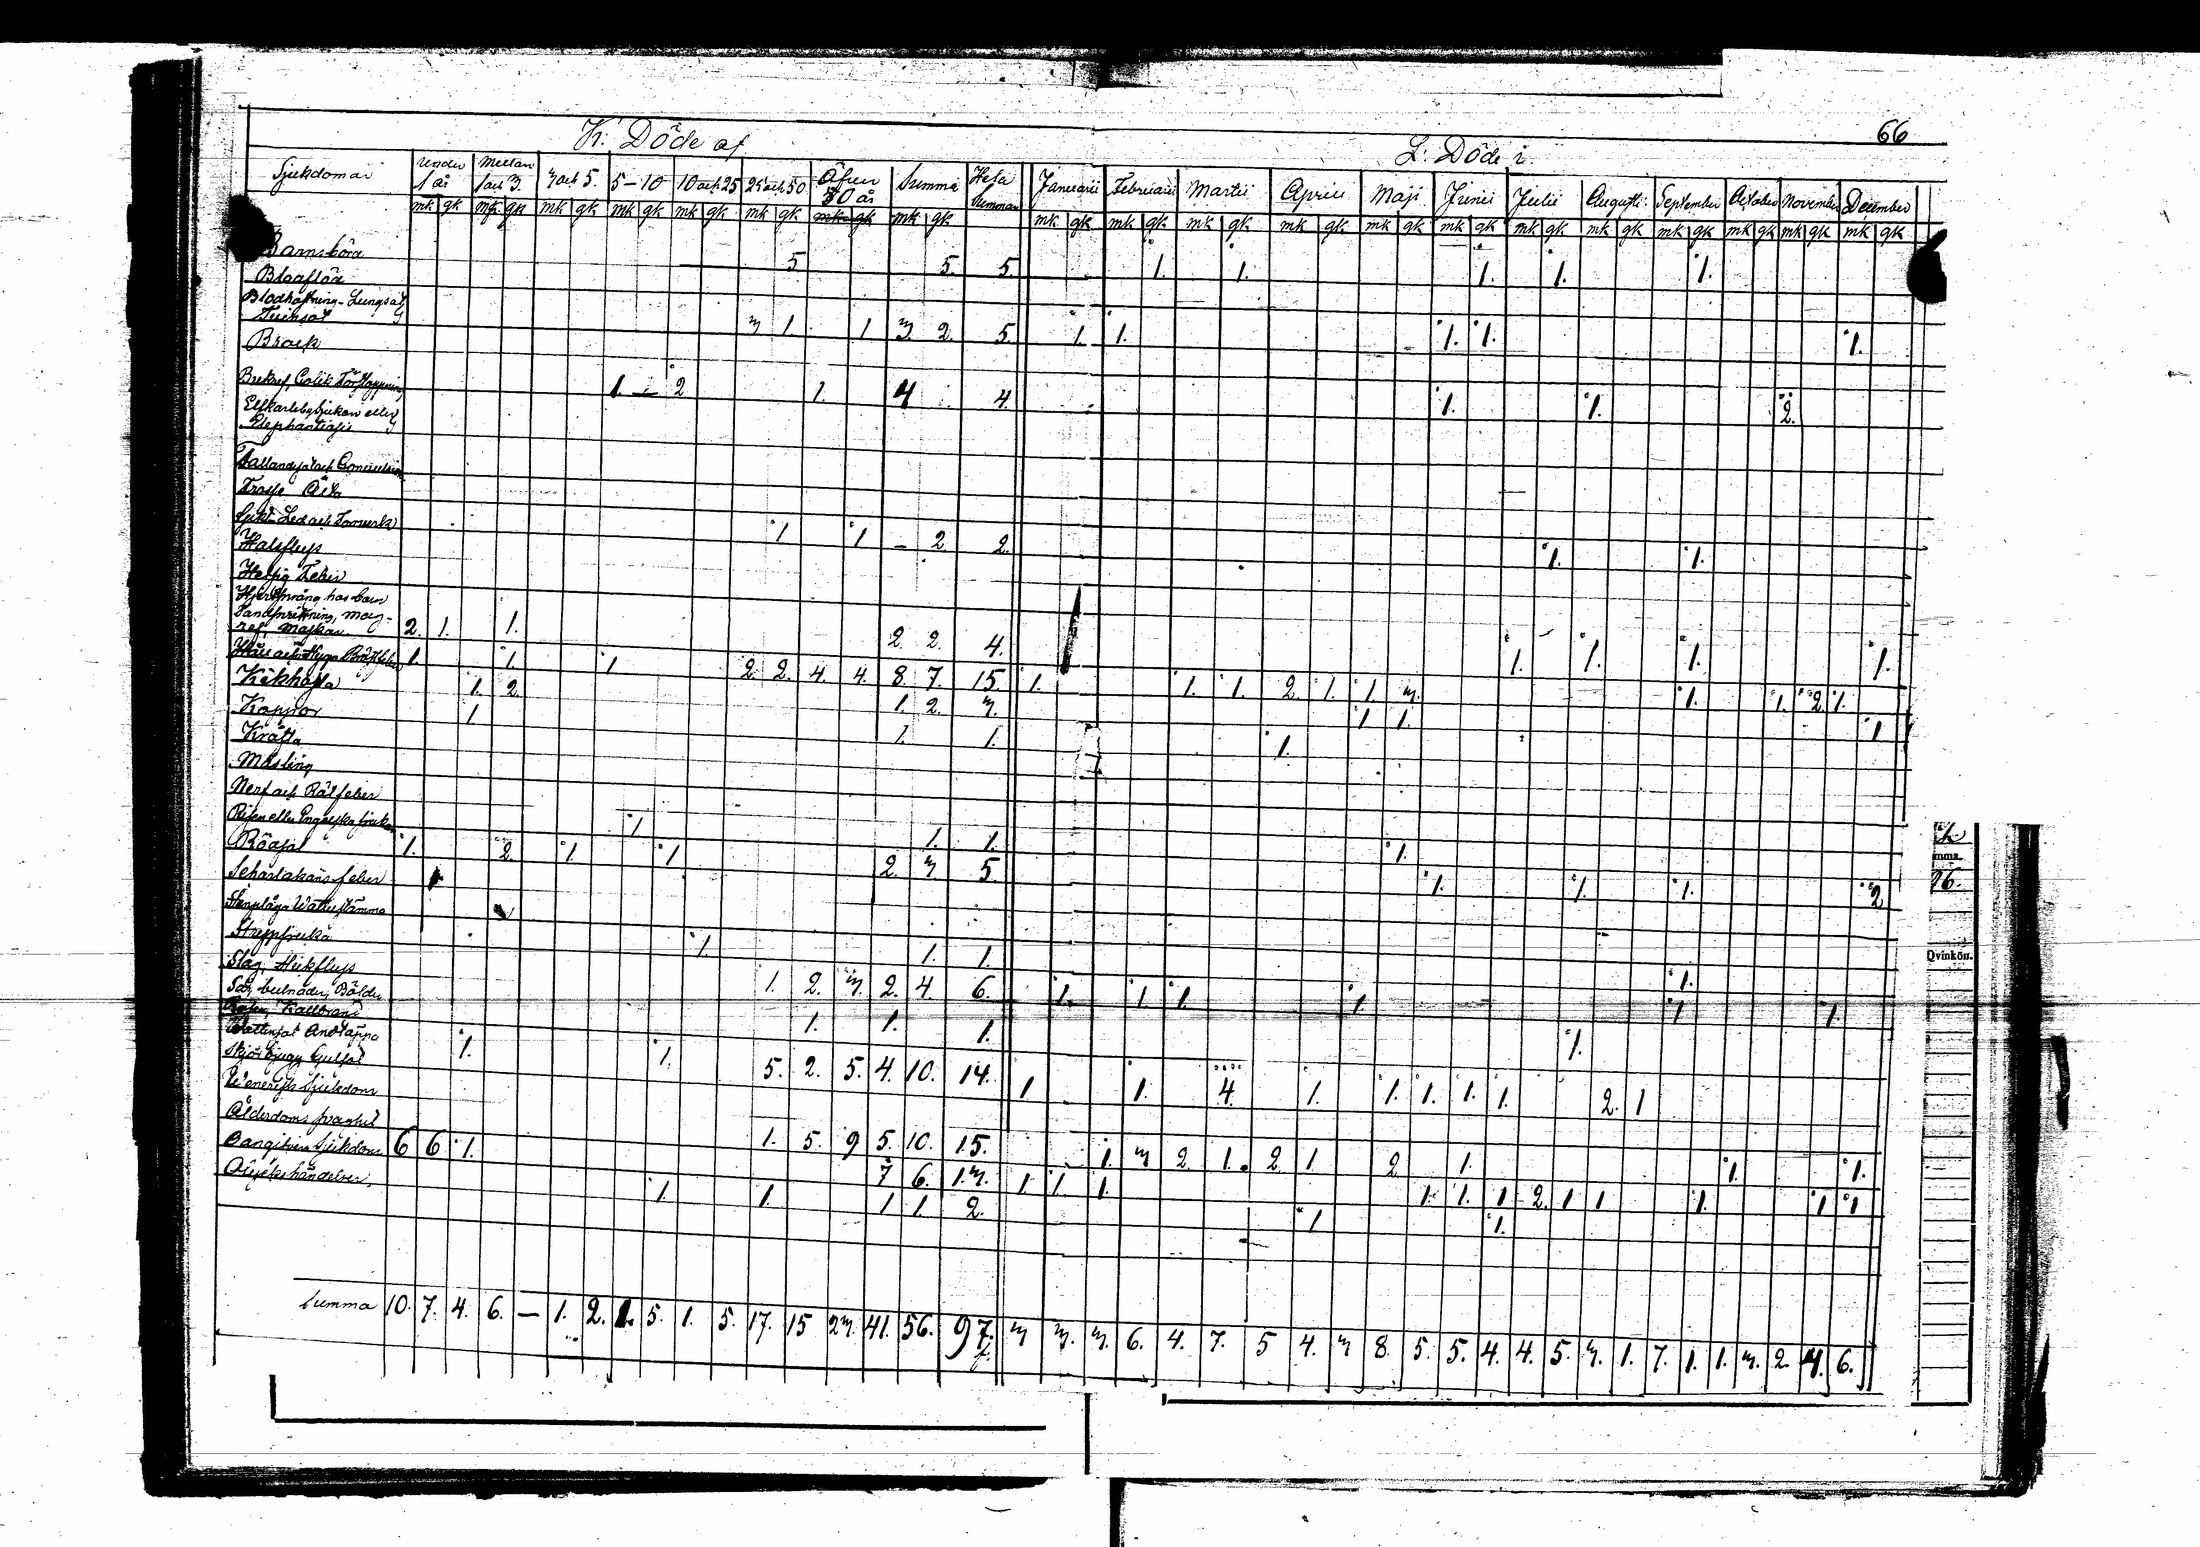 66
K: Döde af L: Döde i.
Sjukdomar under 1 år mellan 1 och 3. 3 och 5. 5–10 10 och 25 25 och 50 Öfver 50 år Summa Hela Summan Januarii Februarii Martii Aprill Maji Junii Julii Augusti September October November December
mk gk mk gk mk gk mk gk mk gk mk gk mk gk mk gk mk gk mk gk mk gk mk gk mk gk mk gk mk gk mk gk mk gk mk gk mk gk mk gk
Barnsbörd 5. 5. 5. 1. 1. 1. 1. 1.
Blodflöde
Blodhostning - Lungsot
Tvinsot 3 1 1 3. 2. 5. 1. 1. 1. 1. 1.
Bråck
Bukref, Colik Förstoppning 1. — 2 1. 4 4. 1. 1. 2.
Elfkarleby sjukan eller
Elephantiasis
Fallandesot och Convulsion
Frossa Älta
Gikt Led och Torrverk
Halsfluss 1 1 — 2 2. 1. 1.
Hetsig Feber
Hjertsprång hos barn
Tandsprickning, mag-
ref, Maskar 2. 1. 1. 2. 2. 4. 1. 1. 1. 1.
Håll och Stygn Bröstfeber 1. 1. 1 2. 2. 4. 4. 8. 7. 15. 1. 1. 1. 2. 1. 1. 3. 1. 1. 2. 1.
Kikhosta 1. 2. 1. 2. 3. 1 1. 1
Koppor 1 1. 1. 1.
Kräfta
Mässling
Nerf och Rötfeber
Risen eller Engelska sjukan 1 1. 1. 1.
Rödsot 1. 2 1. 1 2. 3. 5. 1. 1. 1. 2
Scharlakansfeber
Stenplåga Wattustämma
Strypsjuka 1. 1. 1. 1.
Slag, Stickfluss 1. 2. 3. 2. 4. 6. 1. 1. 1. 1. 1 1.
Sår, bulnader, Bölder
Rosen, Kallbrand 1. 1. 1. 1.
Wattusot Andtäppa 1. 1. 5. 2. 5. 4. 10. 14. 1 1. 4. 1. 1. 1. 1. 1. 2. 1
Skjörbjugg Gulsot
Venerisk Sjukdom
Ålderdoms svaghet 1. 5. 9 5. 10. 15. 1. 3 2. 1. 2. 1 2 1. 1. 1.
Oangifven Sjukdom 6 6 1. 7 6. 13. 1. 1. 1. 1. 1. 1 2. 1 1 1. 1 1
Olyckshändelser 1. 1. 1 1. 2. 1 1.
Summa 10. 7. 4. 6. — 1. 2. 1. 5. 1. 5. 17. 15 23. 41. 56. 97. 3 3. 3. 6. 4. 7. 5 4. 3 8. 5. 5. 4. 4. 5. 3. 1. 7. 1. 1. 3. 2. 4. 6.
mma
Qvinkön.